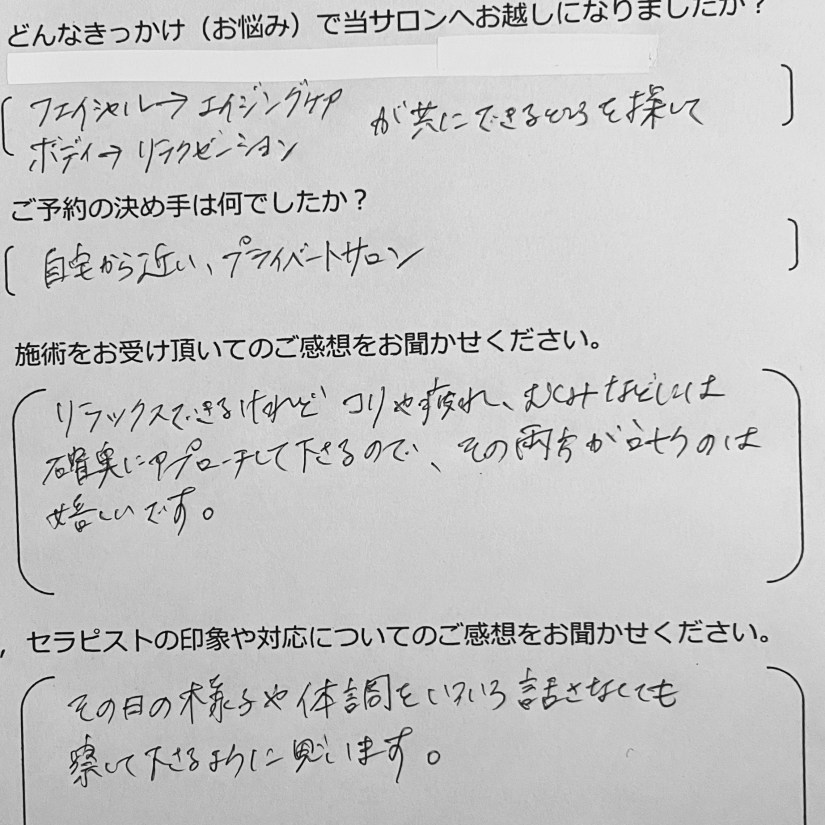 どんなきっかけ（お悩み）で当サロンへお越しになりましたか？
フェイシャル→エイジングケア
ボディ→リラクゼーション
が共にできるところを探して
ご予約の決め手は何でしたか？
自宅から近い、プライベートサロン
施術をお受け頂いてのご感想をお聞かせください。
リラックスできるけれど コリや疲れ、むくみなどには
確実にアプローチして下さるので、その両方が叶うのは
嬉しいです。
セラピストの印象や対応についてのご感想をお聞かせください。
その日の様子や体調をいろいろ話さなくても
察して下さるように思います。